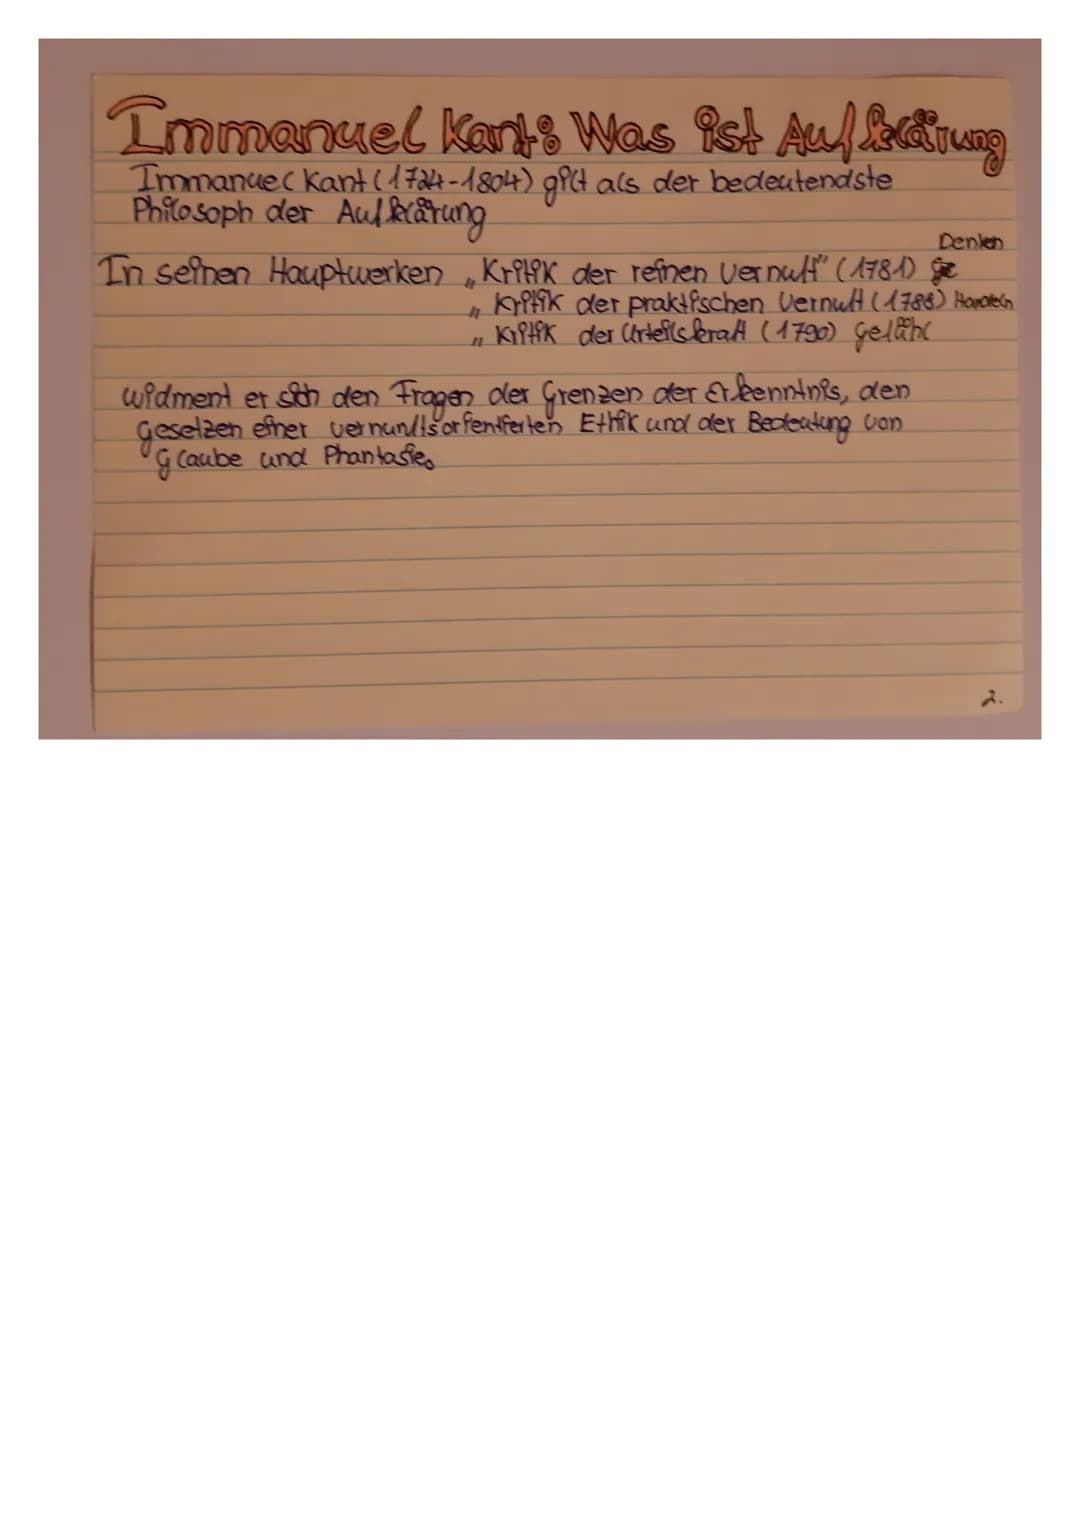 Immanuel Kant: Was ist Aufklärung
Immanuel Kant (1724-1804) gilt als der bedeutendste
Philosoph der Aufklärung
Denken
In seinen Hauptwerken „Kritik der reinen Vernuft" (1781)
„Kritik der praktischen Vernuft (1788) Handeln
„Kritik der Urteilskraft (1790) Gefühl
widment er sich den Fragen der Grenzen der Erkenntnis, den
Gesetzen einer vernunftsorientierten Ethik und der Bedeutung von
Glaube und Phantasie.
2.